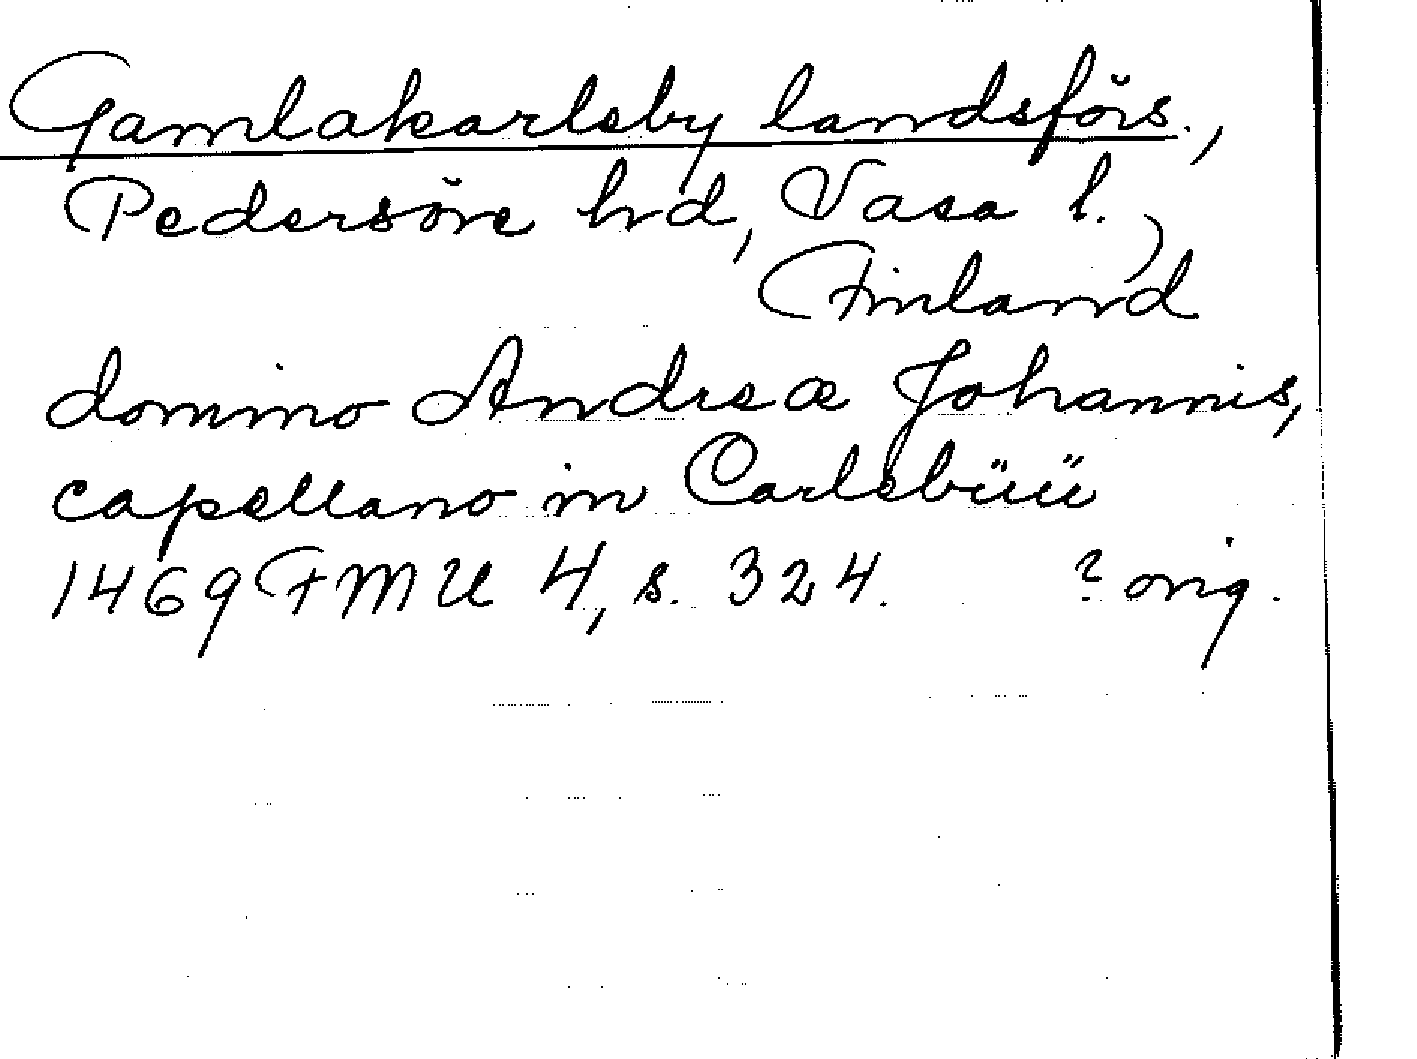 Gamlakarleby landsförs.,
Pedersöre hrd, Vasa l.,
Finland
domino Andreæ Johannis,
capellano in Carlebüü
1469 FMU 4, s. 324. ? orig.